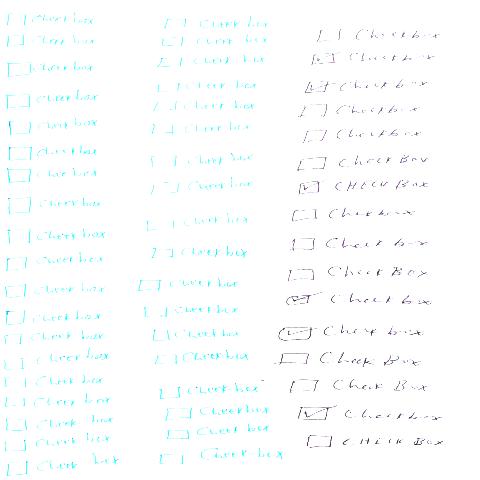 Check box
Check box
Check box
Check box
Check box
Check box
Check box
Check box
Check box
Check box
Check box
Check box
Check box
Check box
Check box
Check box
Check box
Check box
Check box
Check box
Check box
Check box
Check box
Check box
Check box
Check box
Check box
Check box
Check box
Check box
Check box
Check box
Check box
Check box
Checkbox
Check box
Check box
Check box
Check box
Check box
Check box
Check box
Check Box
CHECK Box
Check box
Check box
Check Box
Check box
Check box
Check Box
Check Box
Checkbox
CHECK BOX